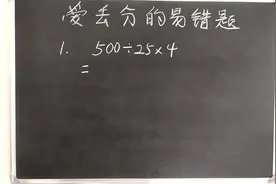 爱丢分的易错题
1. 500÷25×4
=